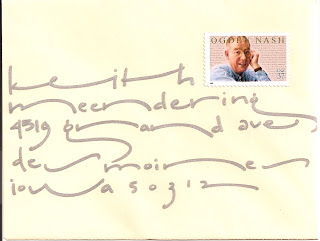 OGDEN NASH
37
keith
meendering
4519 grand ave
des moines
iowa 50312